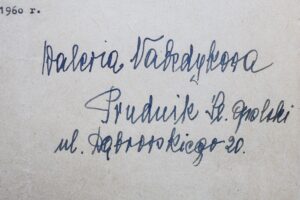 1960 г.
Waleria Nabzdykowa
Prudnik Śl. Opolski
ul. Dąbrowskiego 20.